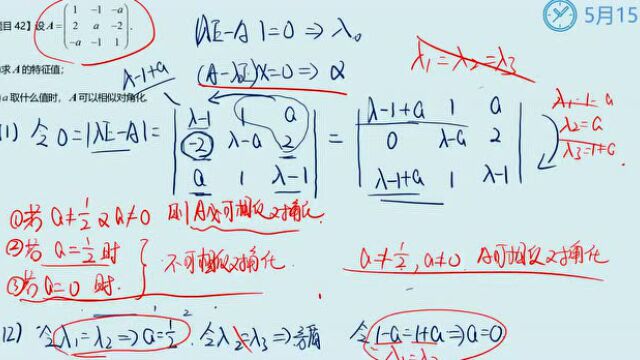 题目 42】设 A = ( 1 -1 -a
2 a -2
-a -1 1 ).
求 A 的特征值;
a 取什么值时, A 可以相似对角化.
5月15
|λE-A|=0 ⇒ λ。
(A-λE)X=0 ⇒ α
λ1=λ2=λ3
λ-1+a
(1) 令 0=|λE-A|= | λ-1 1 a | = | λ-1+a 1 a |
| -2 λ-a 2 | | 0 λ-a 2 |
| a 1 λ-1 | | λ-1+a 1 λ-1 |
λ1=1-a
λ2=a
λ3=1+a
①若 a≠1/2 且 a≠0 则A必可相似对角化.
②若 a=1/2 时
③若 a=0 时.
不可相似对角化
a≠1/2, a≠0. A可相似对角化
(2) 令λ1=λ2⇒a=1/2. 令λ2=λ3⇒矛盾 令1-a=1+a⇒a=0
λ1=λ3